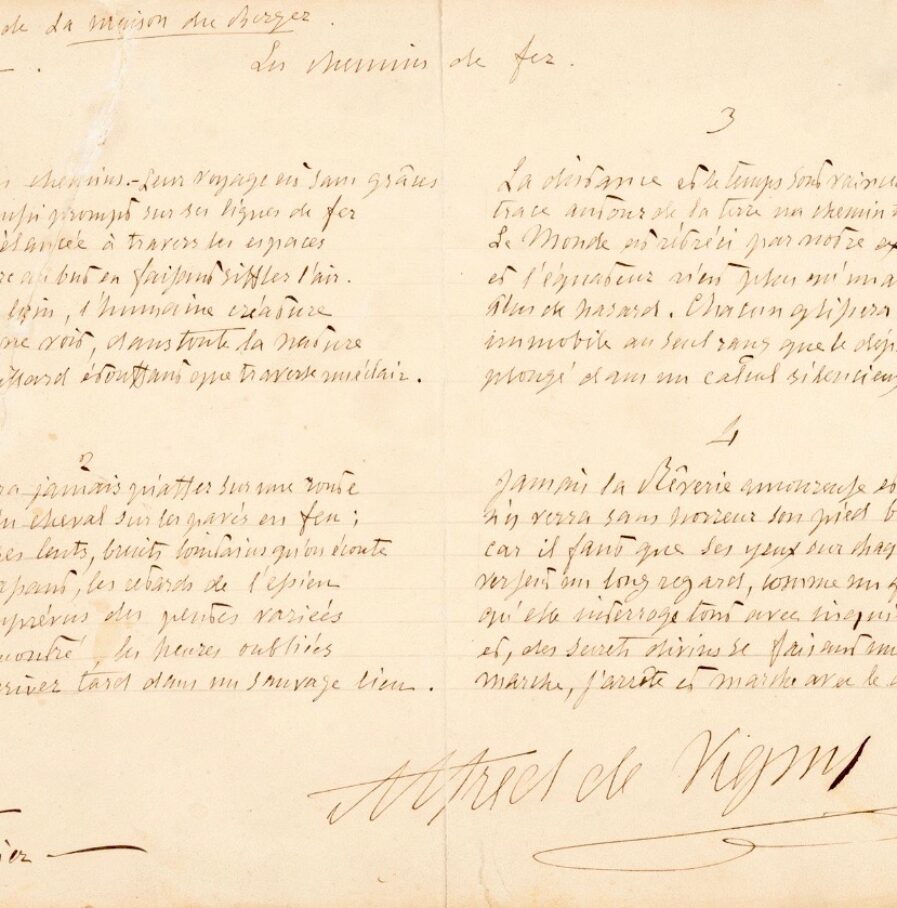 de La Maison du Berger.
Les chemins de fer.
chemins. - Leur voyage est sans grâces
prompt sur ses lignes de fer
élancée à travers les espaces
au but en faisant siffler l'air.
loin, l'humaine créature
ne voit, dans toute la nature
étouffant que traverse un éclair.
2
jamais piaffer sur une route
du cheval sur les pavés en feu ;
lents, bruits lointains qu'on écoute
les retards de l'essieu
imprévus des pentes variées
les heures oubliées
arriver tard dans un sauvage lieu.
3
La distance et le temps sont vaincus
trace autour de la terre un chemin
Le Monde est rétréci par notre
et l'équateur n'est plus
Plus de hazard. Chacun glissera
immobile au seul rang que le
plongé dans un calcul silencieux
4
Jamais la Rêverie amoureuse et
n'y verra sans horreur son pied
car il faut que ses yeux sur
versent un long regard, comme un
qu'elle interroge tout avec
et, des secrets divins se faisant
marche, s'arrête et marche avec le
Alfred de Vigny